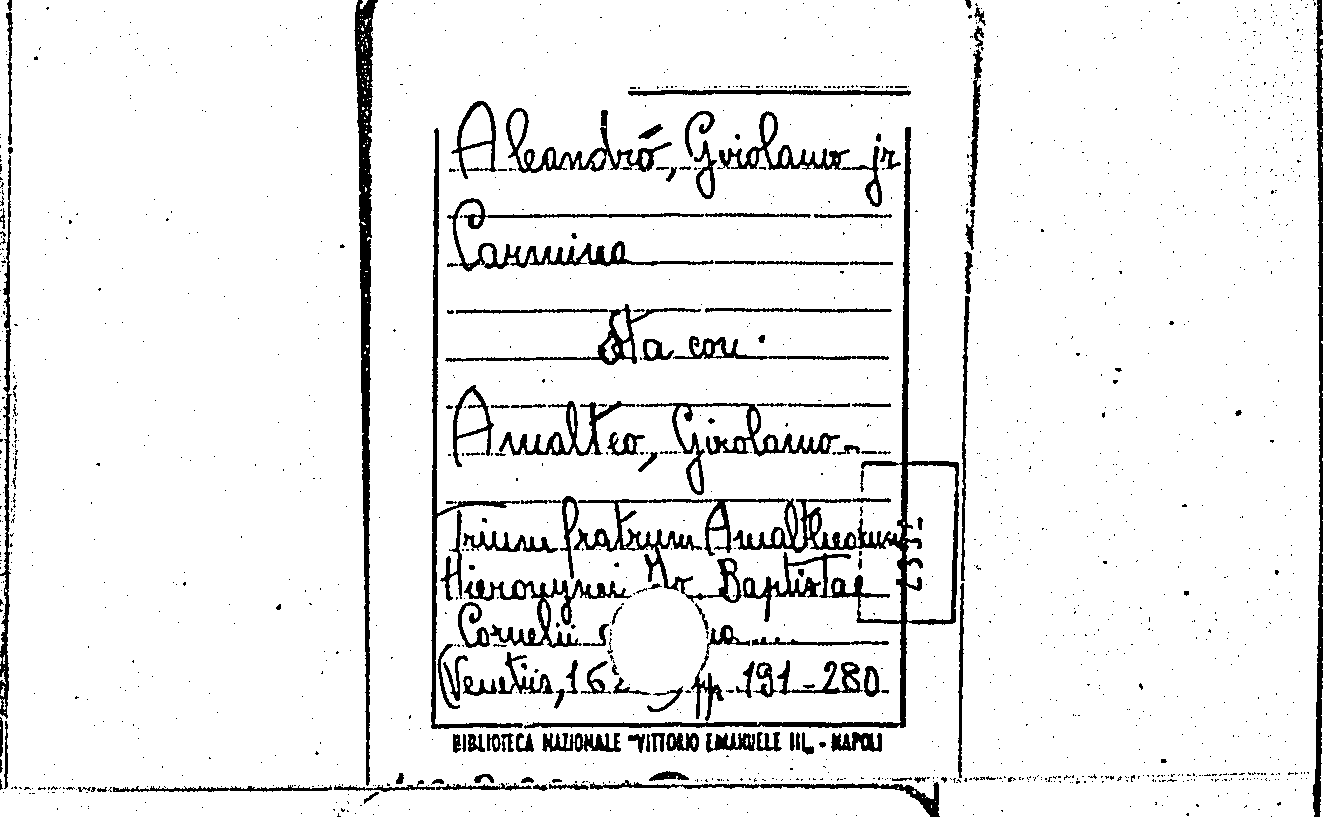 Aleandro, Girolamo jr
Carmina
Sta con:
Amalteo, Girolamo
Trium fratrum Amaltheorum
Hieronymi Io. Baptistae
Cornelii
(Venetiis, 16 pp 191-280
BIBLIOTECA NAZIONALE "VITTORIO EMANUELE III„ - NAPOLI